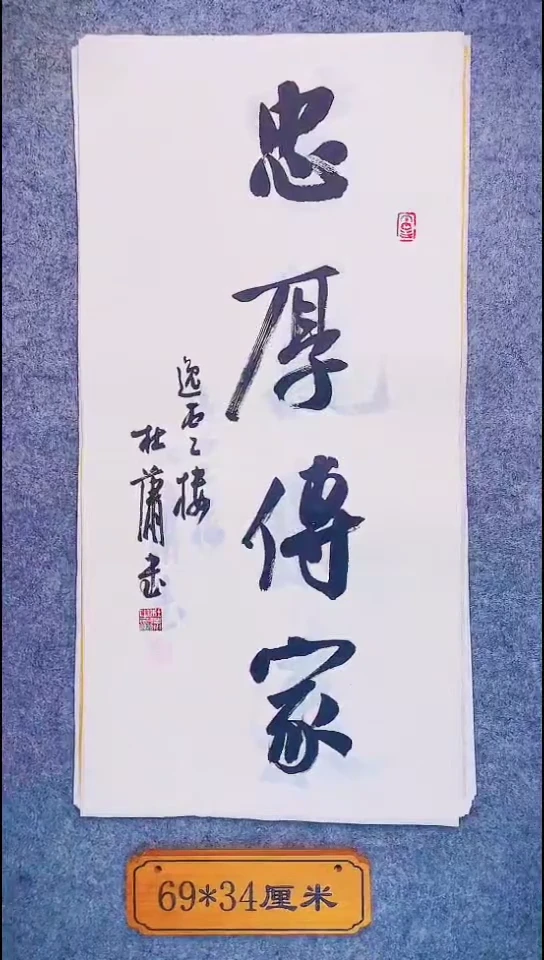 忠厚傳家
逸石之樓
杜蕭書
69*34厘米